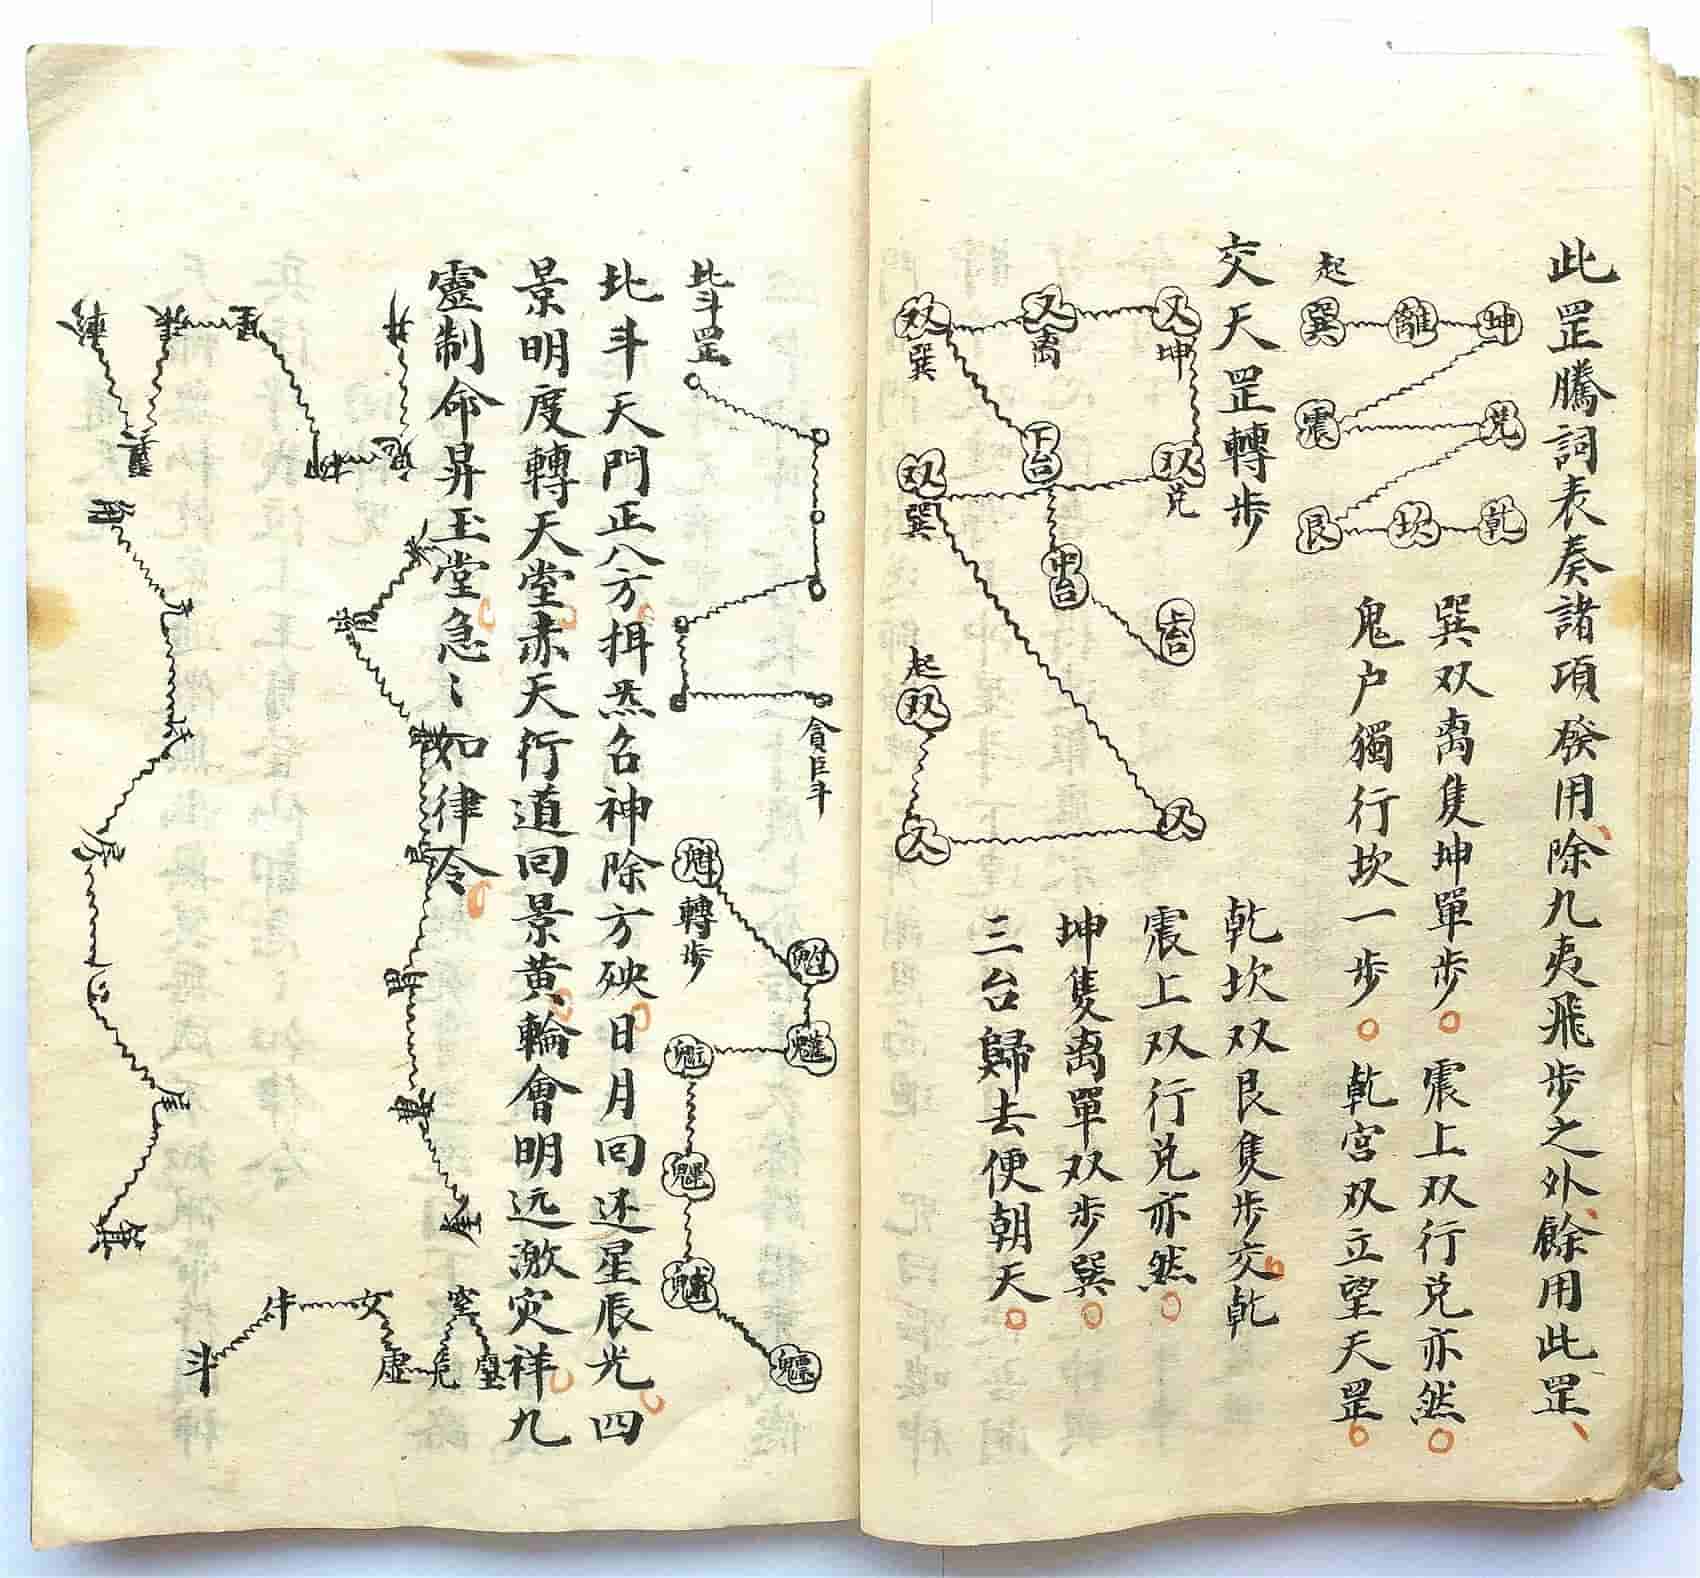 此罡騰詞表奏諸項發用除九夷飛步之外餘用此罡
起
巽 離 坤
震 兌
艮 坎 乾
巽双离隻坤單步 震上双行兌亦然
鬼户獨行坎一步 乾宮双立望天罡
交天罡轉步
双巽 又离 又坤
下台 双兌
双巽
中台
上台
起双
又 又
乾坎双艮隻步交乾
震上双行兌亦然
坤隻离單双步巽
三台歸去便朝天
北斗罡
貪巨斗
魁
轉步
北斗天門正八方揖炁召神除方殃日月回还星辰光四
景明度轉天堂赤天行道回景黄輪會明远激灾祥九
靈制命昇玉堂急〻如律令
井 鬼
柳 星 張 翼 軫
角 亢 氐 房 心 尾 箕
斗 牛 女 虛 危 室 壁
奎 婁 胃 昴 畢 觜 參